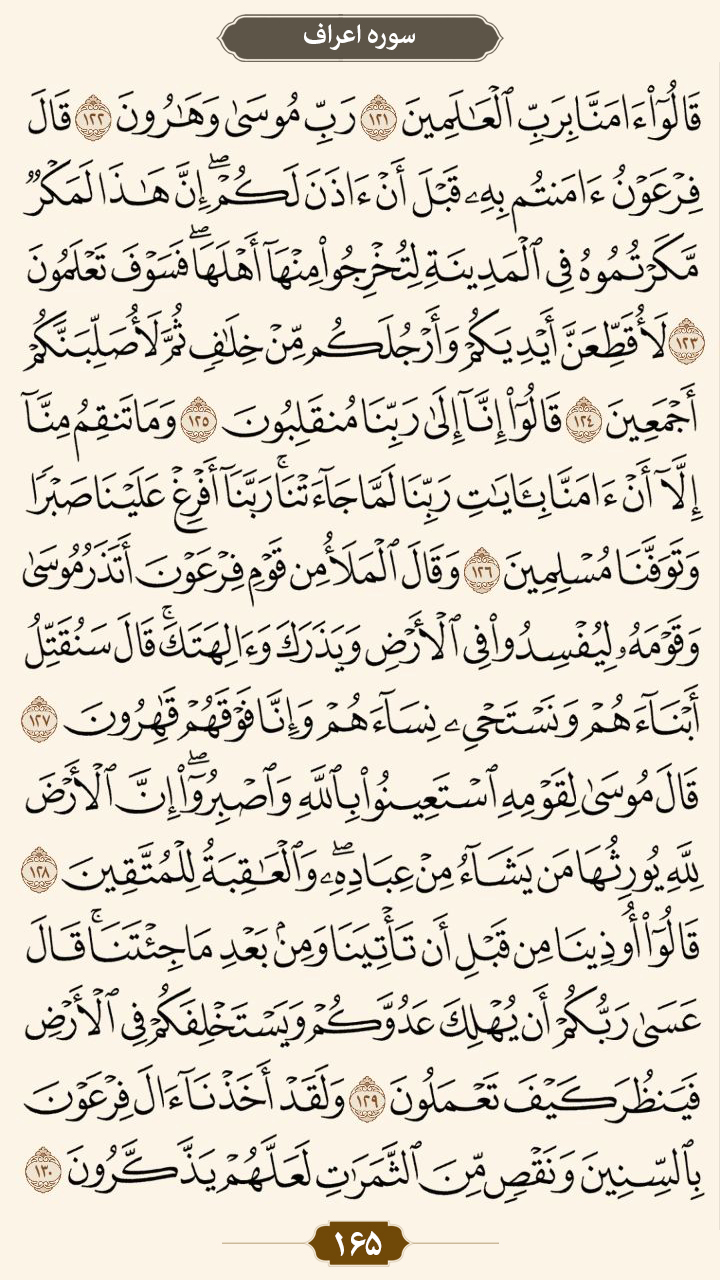 سوره اعراف
قَالُوٓا۟ ءَامَنَّا بِرَبِّ ٱلْعَٰلَمِينَ ١٢١ رَبِّ مُوسَىٰ وَهَٰرُونَ ١٢٢ قَالَ
فِرْعَوْنُ ءَامَنتُم بِهِۦ قَبْلَ أَنْ ءَاذَنَ لَكُمْ ۖ إِنَّ هَٰذَا لَمَكْرٌ
مَّكَرْتُمُوهُ فِى ٱلْمَدِينَةِ لِتُخْرِجُوا۟ مِنْهَآ أَهْلَهَا ۖ فَسَوْفَ تَعْلَمُونَ
١٢٣ لَأُقَطِّعَنَّ أَيْدِيَكُمْ وَأَرْجُلَكُم مِّنْ خِلَٰفٍ ثُمَّ لَأُصَلِّبَنَّكُمْ
أَجْمَعِينَ ١٢٤ قَالُوٓا۟ إِنَّآ إِلَىٰ رَبِّنَا مُنقَلِبُونَ ١٢٥ وَمَا تَنقِمُ مِنَّآ
إِلَّآ أَنْ ءَامَنَّا بِـَٔايَٰتِ رَبِّنَا لَمَّا جَآءَتْنَا ۚ رَبَّنَآ أَفْرِغْ عَلَيْنَا صَبْرًا
وَتَوَفَّنَا مُسْلِمِينَ ١٢٦ وَقَالَ ٱلْمَلَأُ مِن قَوْمِ فِرْعَوْنَ أَتَذَرُ مُوسَىٰ
وَقَوْمَهُۥ لِيُفْسِدُوا۟ فِى ٱلْأَرْضِ وَيَذَرَكَ وَءَالِهَتَكَ ۚ قَالَ سَنُقَتِّلُ
أَبْنَآءَهُمْ وَنَسْتَحْىِۦ نِسَآءَهُمْ وَإِنَّا فَوْقَهُمْ قَٰهِرُونَ ١٢٧
قَالَ مُوسَىٰ لِقَوْمِهِ ٱسْتَعِينُوا۟ بِٱللَّهِ وَٱصْبِرُوٓا۟ ۖ إِنَّ ٱلْأَرْضَ
لِلَّهِ يُورِثُهَا مَن يَشَآءُ مِنْ عِبَادِهِۦ ۖ وَٱلْعَٰقِبَةُ لِلْمُتَّقِينَ ١٢٨
قَالُوٓا۟ أُوذِينَا مِن قَبْلِ أَن تَأْتِيَنَا وَمِنۢ بَعْدِ مَا جِئْتَنَا ۚ قَالَ
عَسَىٰ رَبُّكُمْ أَن يُهْلِكَ عَدُوَّكُمْ وَيَسْتَخْلِفَكُمْ فِى ٱلْأَرْضِ
فَيَنظُرَ كَيْفَ تَعْمَلُونَ ١٢٩ وَلَقَدْ أَخَذْنَآ ءَالَ فِرْعَوْنَ
بِٱلسِّنِينَ وَنَقْصٍ مِّنَ ٱلثَّمَرَٰتِ لَعَلَّهُمْ يَذَّكَّرُونَ ١٣٠
۱۶۵